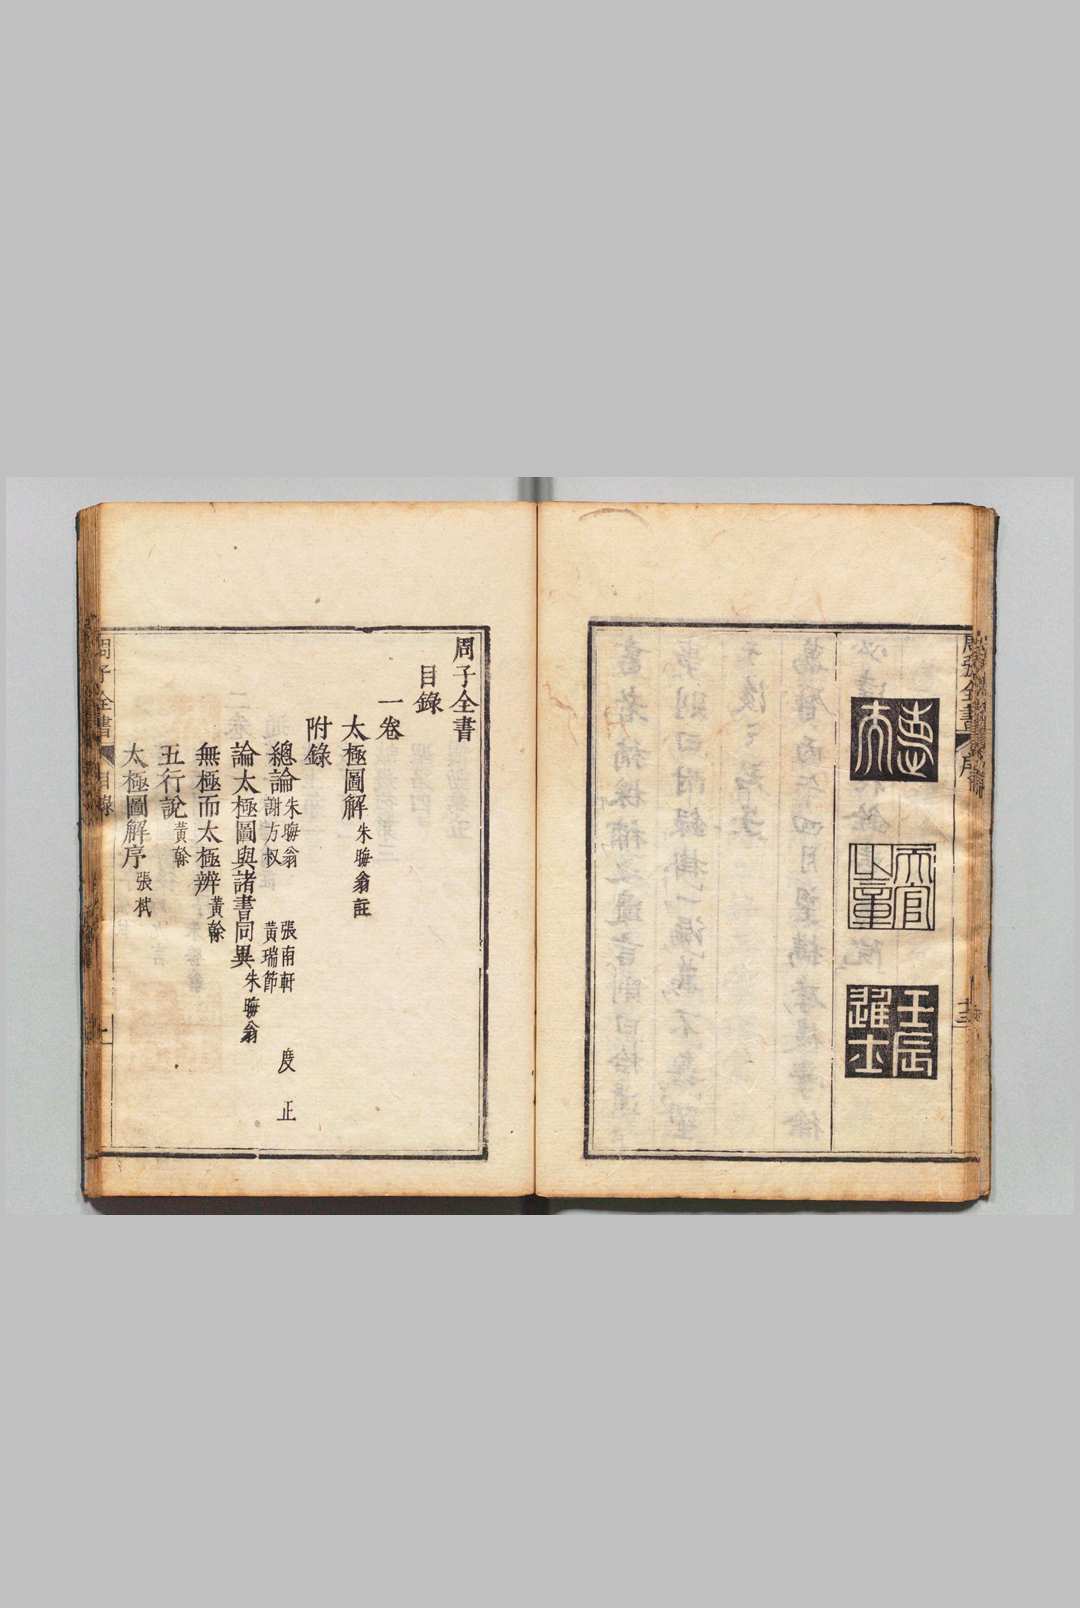 周張全書
序
十三
壬辰
進士
周子全書
目錄
一卷
太極圖解 朱晦翁註
附錄
總論 朱晦翁 張南軒 度正
謝方叔 黃瑞節
論太極圖與諸書同異 朱晦翁
無極而太極辨 黃榦
五行說 黃榦
太極圖解序 張栻
周子全書
目錄